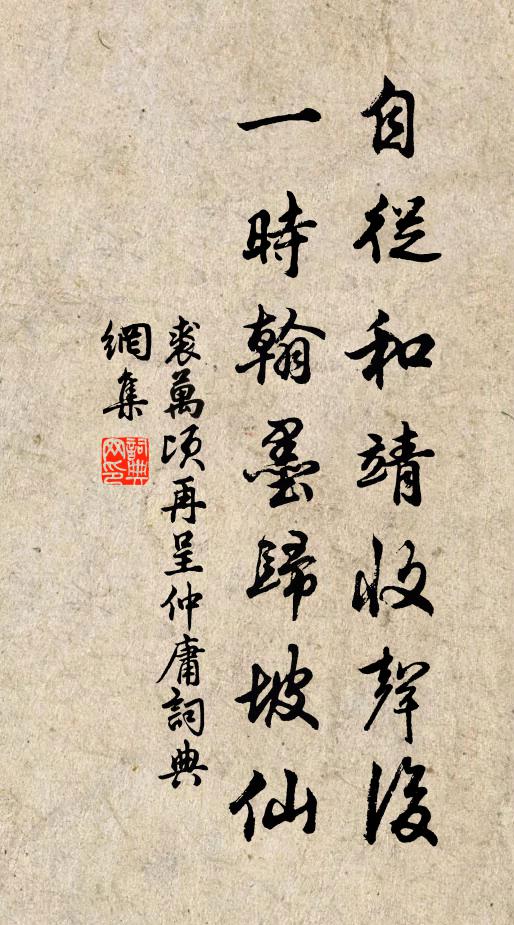 自從和靖收聲後
一時翰墨歸坡仙
裘萬頃再呈仲庸詞典
網集
詞典網印